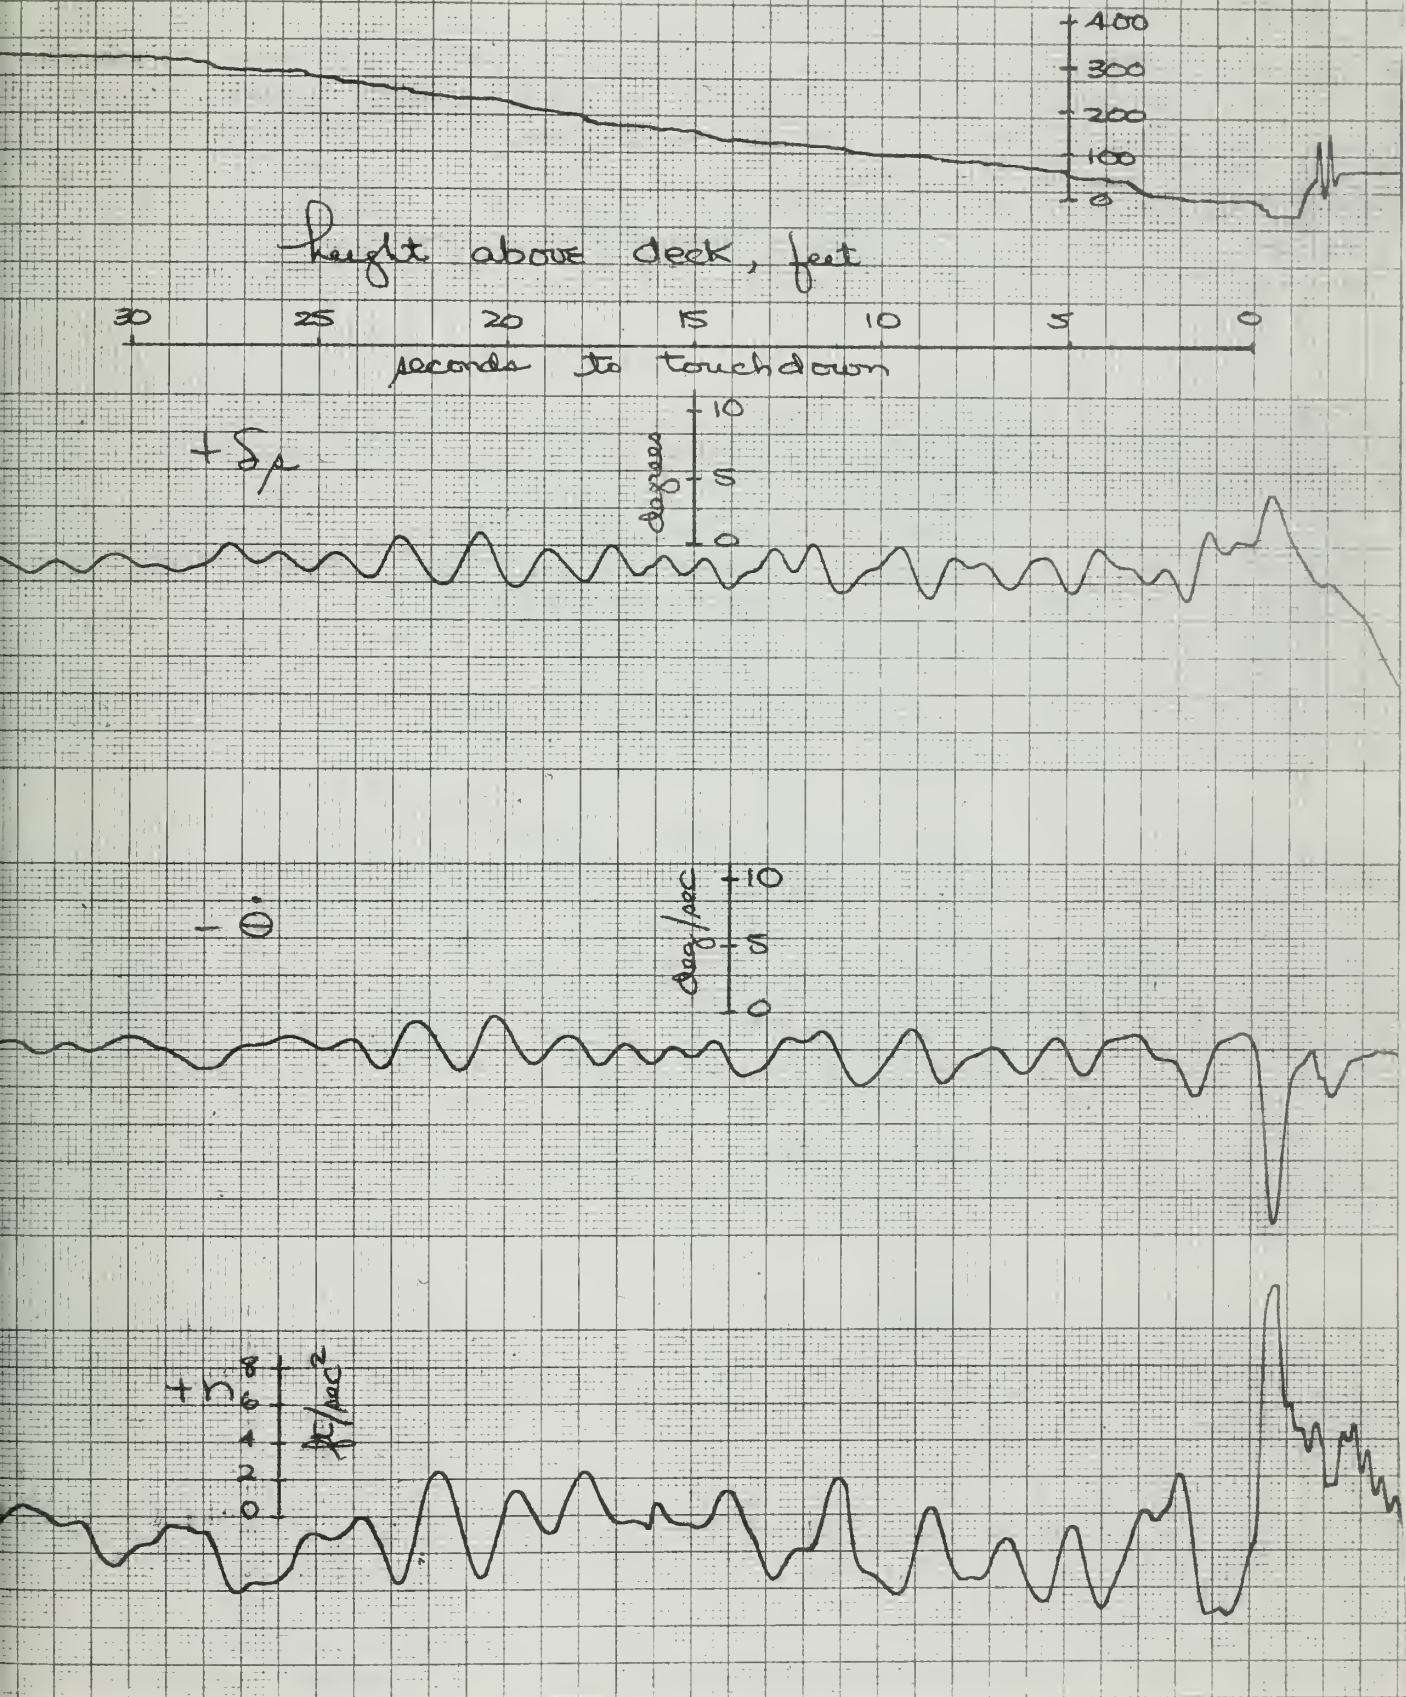 400
300
200
100
0
height above deck, feet
30 25 20 15 10 5 0
seconds to touchdown
+ δs
degrees
10
5
0
- θ̇
deg/sec
10
5
0
+ n
8
6
4
2
0
ft/sec²